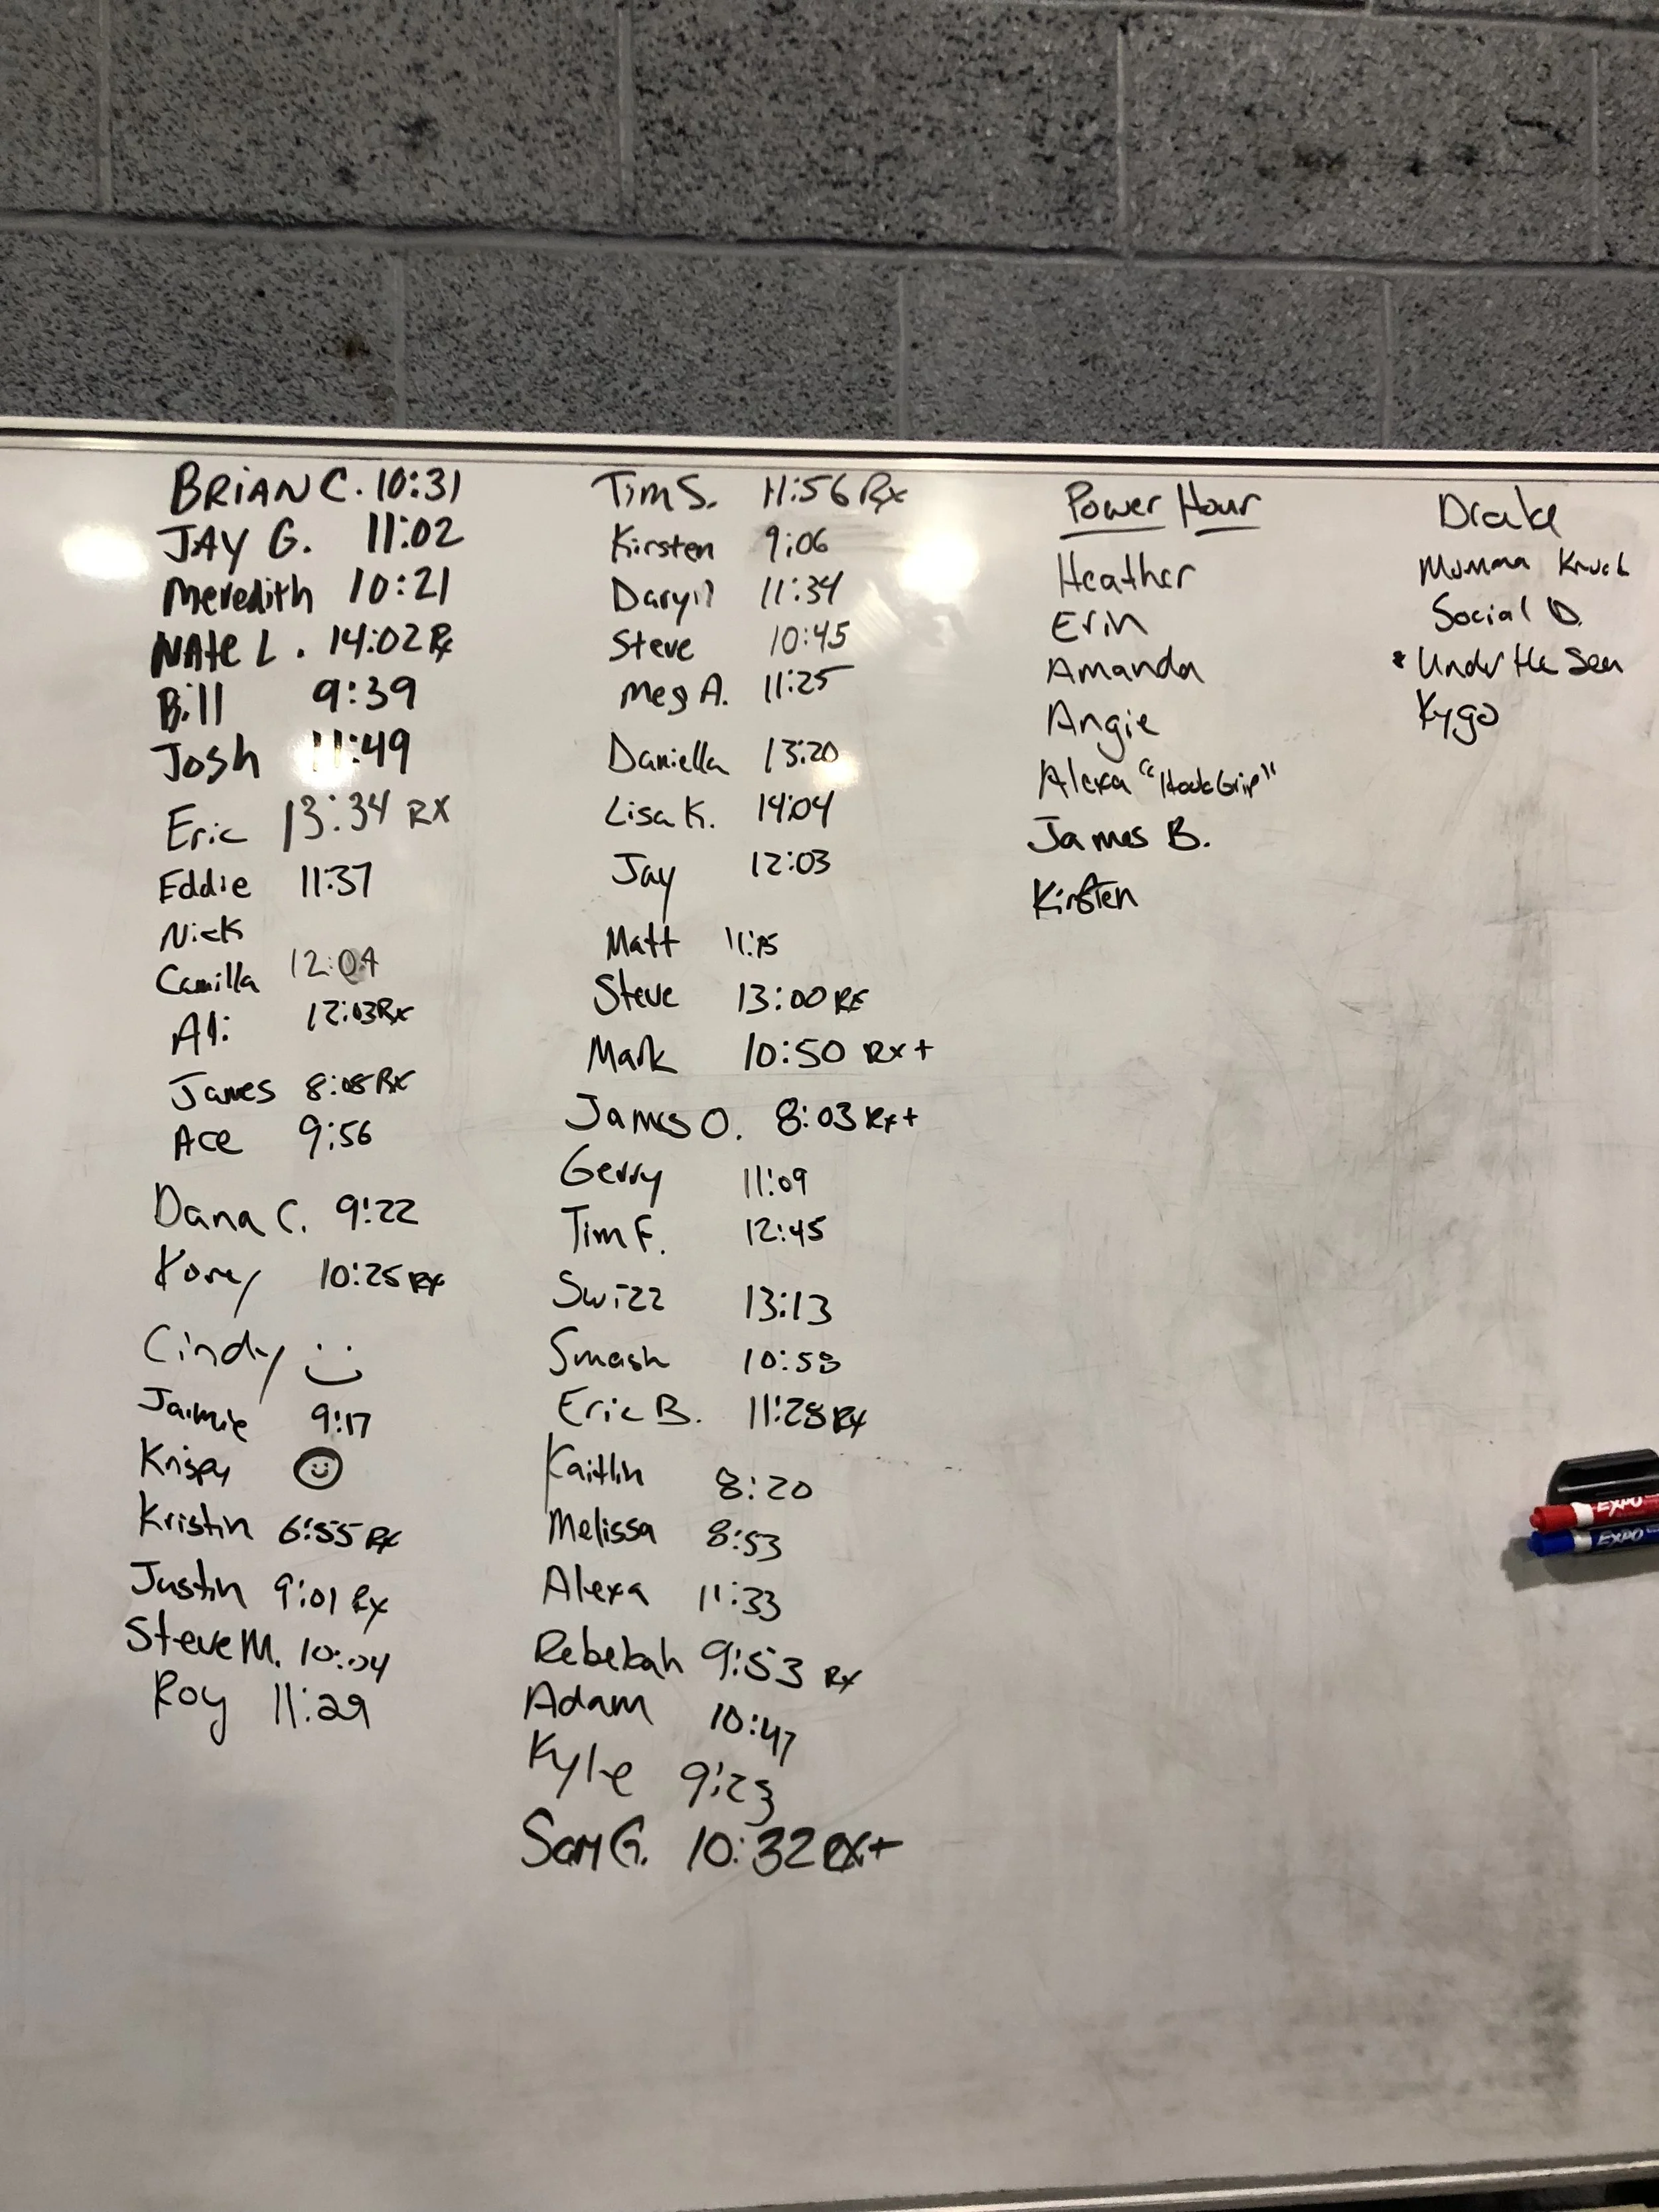 BRIAN C. 10:31
JAY G. 11:02
Meredith 10:21
NAte L. 14:02 Rx
Bill 9:39
Josh 11:49
Eric 13:34 RX
Eddie 11:37
Nick
Camilla 12:04
Ali 12:03 Rx
James 8:08 Rx
Ace 9:56
Dana C. 9:22
Korey 10:25 Rx
Cindy
Jaimie 9:17
Krispy
Kristin 6:55 Rx
Justin 9:01 Rx
Steve M. 10:04
Roy 11:29
Tim S. 11:56 Rx
Kirsten 9:06
Daryll 11:34
Steve 10:45
Meg A. 11:25
Daniella 13:20
Lisa K. 14:04
Jay 12:03
Matt 11:15
Steve 13:00 Rx
Mark 10:50 Rx+
James O. 8:03 Rx+
Gerry 11:09
Tim F. 12:45
Swizz 13:13
Smash 10:58
Eric B. 11:28 Rx
Kaitlin 8:20
Melissa 8:53
Alexa 11:33
Rebekah 9:53 Rx
Adam 10:47
Kyle 9:23
Sam G. 10:32 RX+
Power Hour
Heather
Erin
Amanda
Angie
Alexa "HookGrip"
James B.
Kirsten
Drake
Mumma
Social D.
* Under the Sea
Kygo
EXPO
EXPO